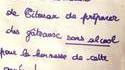 de préparer
des gâteaux sans alcool
pour la kermesse de cette